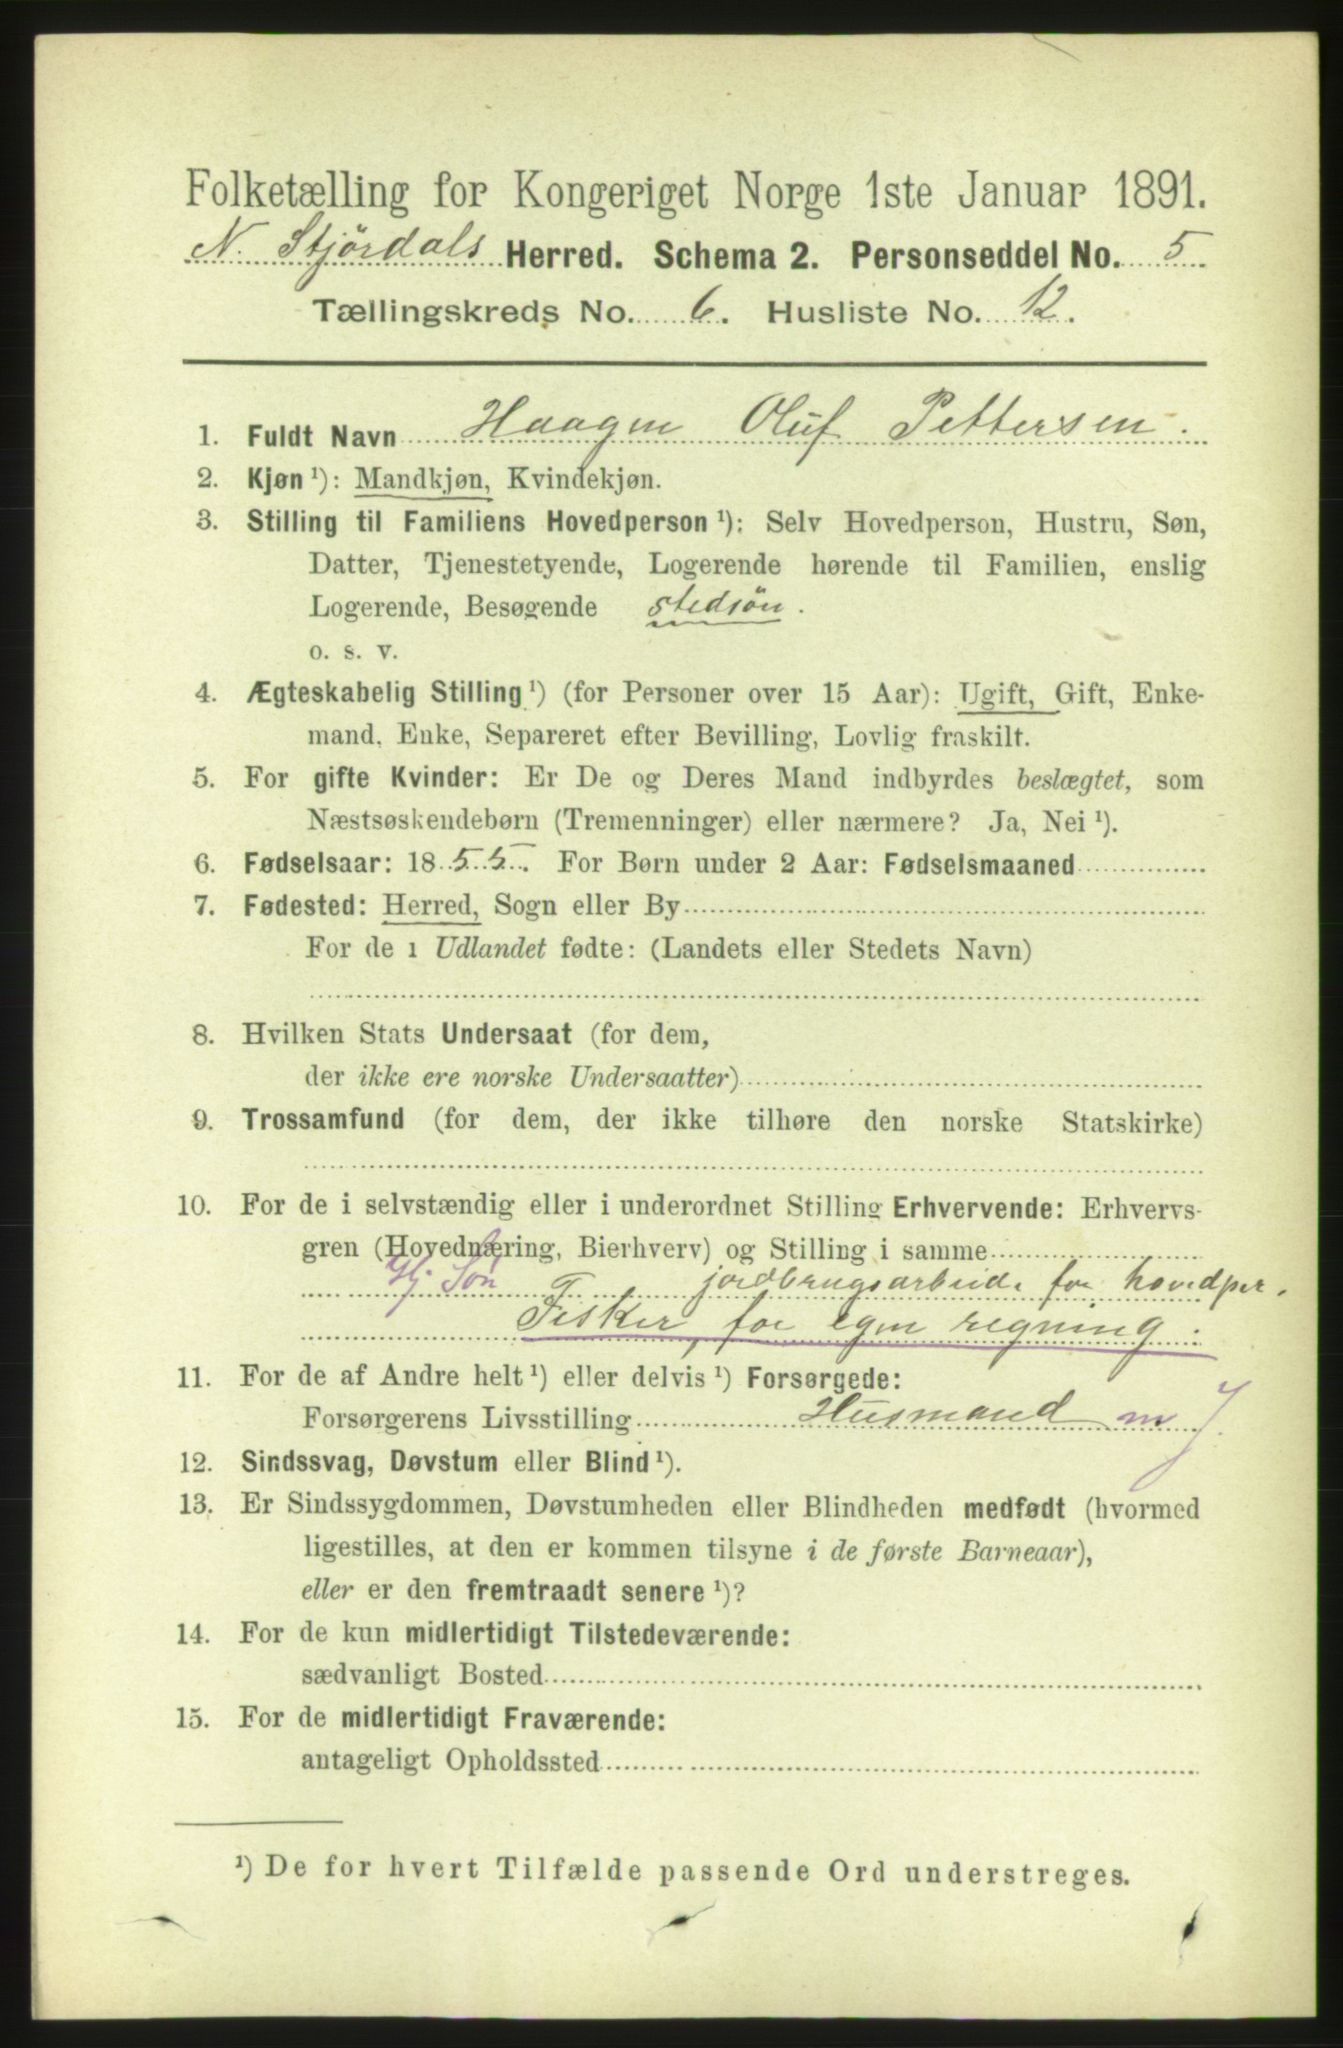 Folketælling for Kongeriget Norge 1ste Januar 1891.
N. Stjördals Herred. Schema 2. Personseddel No. 5
Tællingskreds No. 6. Husliste No. 12.
1. Fuldt Navn Haagen Oluf Pettersen.
2. Kjøn ¹): Mandkjøn, Kvindekjøn.
3. Stilling til Familiens Hovedperson ¹): Selv Hovedperson, Hustru, Søn,
Datter, Tjenestetyende, Logerende hørende til Familien, enslig
Logerende, Besøgende stedsön.
o. s. v.
4. Ægteskabelig Stilling ¹) (for Personer over 15 Aar): Ugift, Gift, Enke-
mand, Enke, Separeret efter Bevilling, Lovlig fraskilt.
5. For gifte Kvinder: Er De og Deres Mand indbyrdes beslægtet, som
Næstsøskendebørn (Tremenninger) eller nærmere? Ja, Nei ¹).
6. Fødselsaar: 1855. For Børn under 2 Aar: Fødselsmaaned
7. Fødested: Herred, Sogn eller By
For de i Udlandet fødte: (Landets eller Stedets Navn)
8. Hvilken Stats Undersaat (for dem,
der ikke ere norske Undersaatter)
9. Trossamfund (for dem, der ikke tilhøre den norske Statskirke)
10. For de i selvstændig eller i underordnet Stilling Erhvervende: Erhvervs-
gren (Hovednæring, Bierhverv) og Stilling i samme
Hj. Søn jordbrugsarbeide for hovedper.
Fisker, for egen regning.
11. For de af Andre helt ¹) eller delvis ¹) Forsørgede:
Forsørgerens Livsstilling Husmand m J.
12. Sindssvag, Døvstum eller Blind ¹).
13. Er Sindssygdommen, Døvstumheden eller Blindheden medfødt (hvormed
ligestilles, at den er kommen tilsyne i de første Barneaar),
eller er den fremtraadt senere ¹)?
14. For de kun midlertidigt Tilstedeværende:
sædvanligt Bosted
15. For de midlertidigt Fraværende:
antageligt Opholdssted
¹) De for hvert Tilfælde passende Ord understreges.